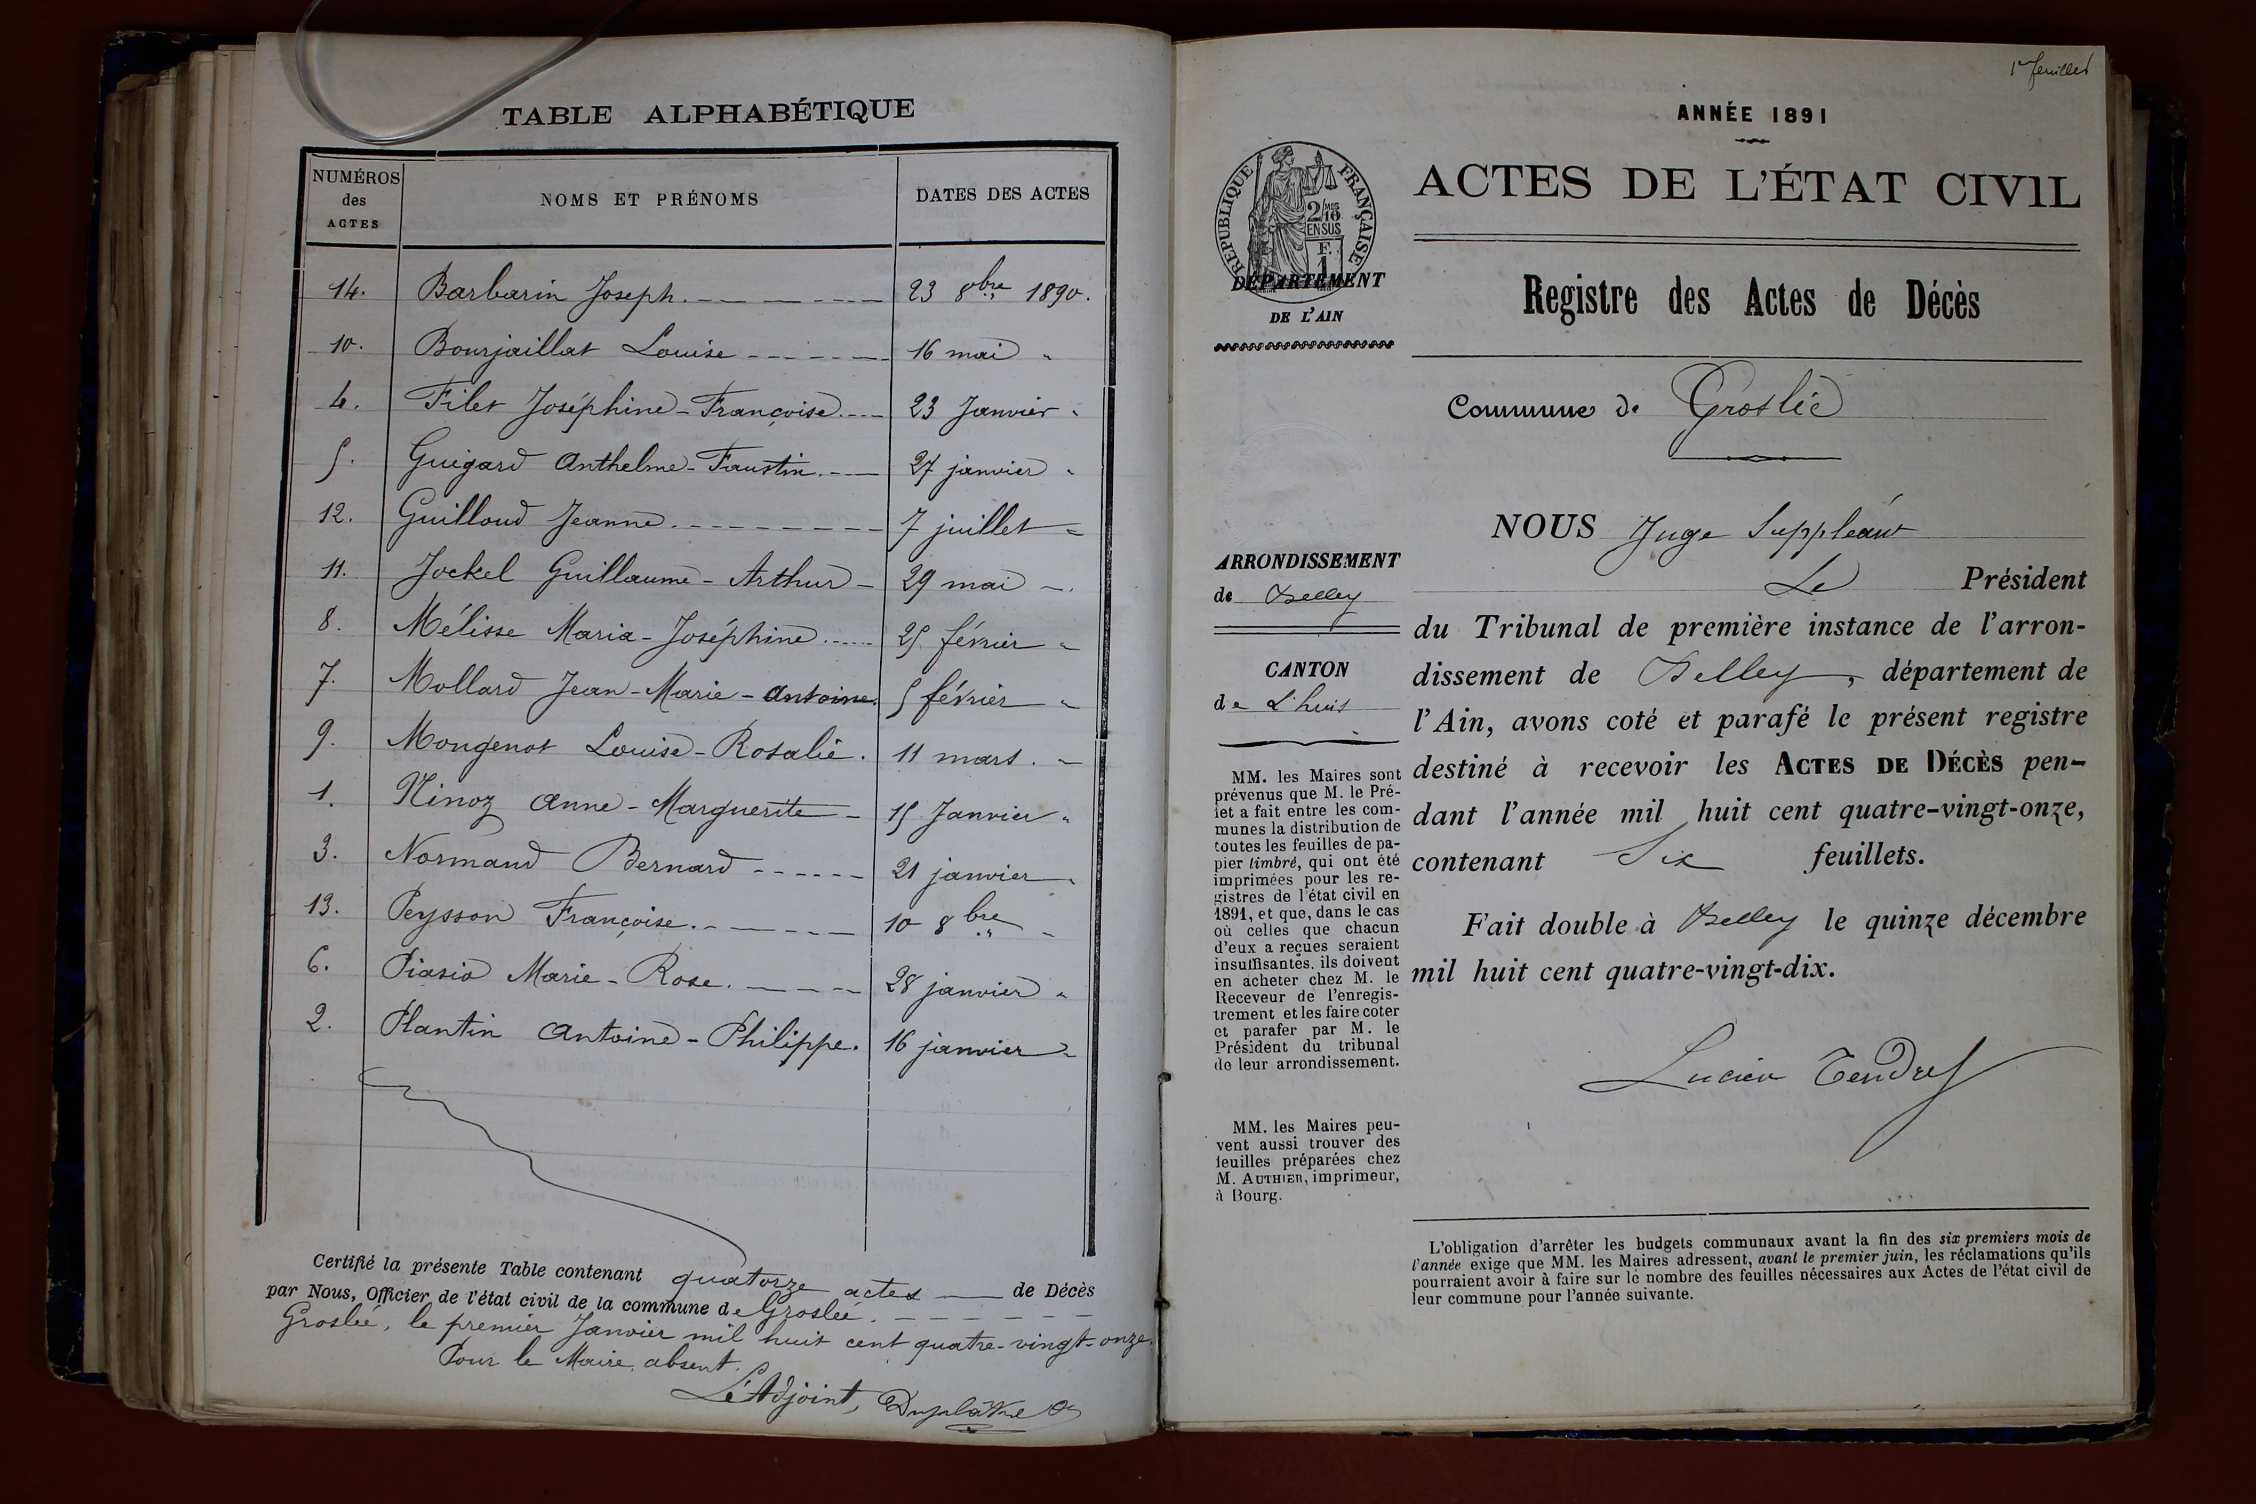 TABLE ALPHABÉTIQUE
NUMÉROS des ACTES NOMS ET PRÉNOMS DATES DES ACTES
14. Barbarin Joseph. 23 8bre 1890.
10. Bourjaillat Louise 16 mai "
4. Filet Joséphine-Françoise 23 Janvier "
5. Guigard Anthelme-Faustin. 27 janvier "
12. Guilloud Jeanne. 7 juillet "
11. Jockel Guillaume-Arthur 29 mai "
8. Mélisse Maria-Joséphine 25 février "
7. Mollard Jean-Marie-Antoine. 5 février "
9. Mongenot Louise-Rosalie. 11 mars. "
1. Ninoz Anne-Marguerite 15 Janvier "
3. Normand Bernard 21 janvier "
13. Peysson Françoise. 10 8bre "
6. Piasio Marie-Rose. 28 janvier "
2. Plantin Antoine-Philippe. 16 janvier "
Certifié la présente Table contenant quatorze actes de Décès
par Nous, Officier de l'état civil de la commune de Groslée.
Groslée, le premier Janvier mil huit cent quatre-vingt-onze.
Pour le Maire absent.
L'Adjoint,
1er feuillet
ANNÉE 1891
ACTES DE L'ÉTAT CIVIL
RÉPUBLIQUE FRANÇAISE
DÉPARTEMENT
DE L'AIN
Registre des Actes de Décès
Commune de Groslée
ARRONDISSEMENT
de Belley
CANTON
de L'huis
MM. les Maires sont
prévenus que M. le Pré-
fet a fait entre les com-
munes la distribution de
toutes les feuilles de pa-
pier timbré, qui ont été
imprimées pour les re-
gistres de l'état civil en
1891, et que, dans le cas
où celles que chacun
d'eux a reçues seraient
insuffisantes, ils doivent
en acheter chez M. le
Receveur de l'enregis-
trement et les faire coter
et parafer par M. le
Président du tribunal
de leur arrondissement.
MM. les Maires peu-
vent aussi trouver des
feuilles préparées chez
M. AUTHIER, imprimeur,
à Bourg.
NOUS Juge Suppléant
Le Président
du Tribunal de première instance de l'arron-
dissement de Belley, département de
l'Ain, avons coté et parafé le présent registre
destiné à recevoir les ACTES DE DÉCÈS pen-
dant l'année mil huit cent quatre-vingt-onze,
contenant Six feuillets.
Fait double à Belley le quinze décembre
mil huit cent quatre-vingt-dix.
Lucien Tendret
L'obligation d'arrêter les budgets communaux avant la fin des six premiers mois de
l'année exige que MM. les Maires adressent, avant le premier juin, les réclamations qu'ils
pourraient avoir à faire sur le nombre des feuilles nécessaires aux Actes de l'état civil de
leur commune pour l'année suivante.